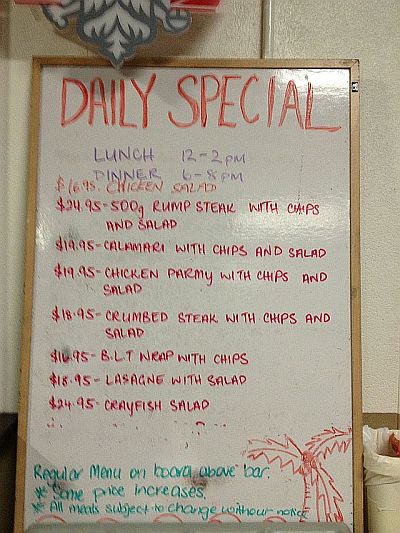 DAILY SPECIAL
LUNCH 12-2PM
DINNER 6-8PM
$16.95. CHICKEN SALAD
$24.95-500g RUMP STEAK WITH CHIPS
AND SALAD
$19.95-CALAMARI WITH CHIPS AND SALAD
$19.95-CHICKEN PARMY WITH CHIPS AND
SALAD
$18.95-CRUMBED STEAK WITH CHIPS AND
SALAD
$16.95-B.L.T WRAP WITH CHIPS
$18.95-LASAGNE WITH SALAD
$24.95-CRAYFISH SALAD
Regular Menu on board above bar.
* Some price increases.
* All meals subject to change without notice